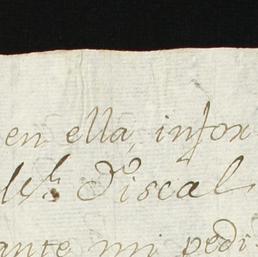 en ella, infor
del s.r Fiscal
ante mi pedi